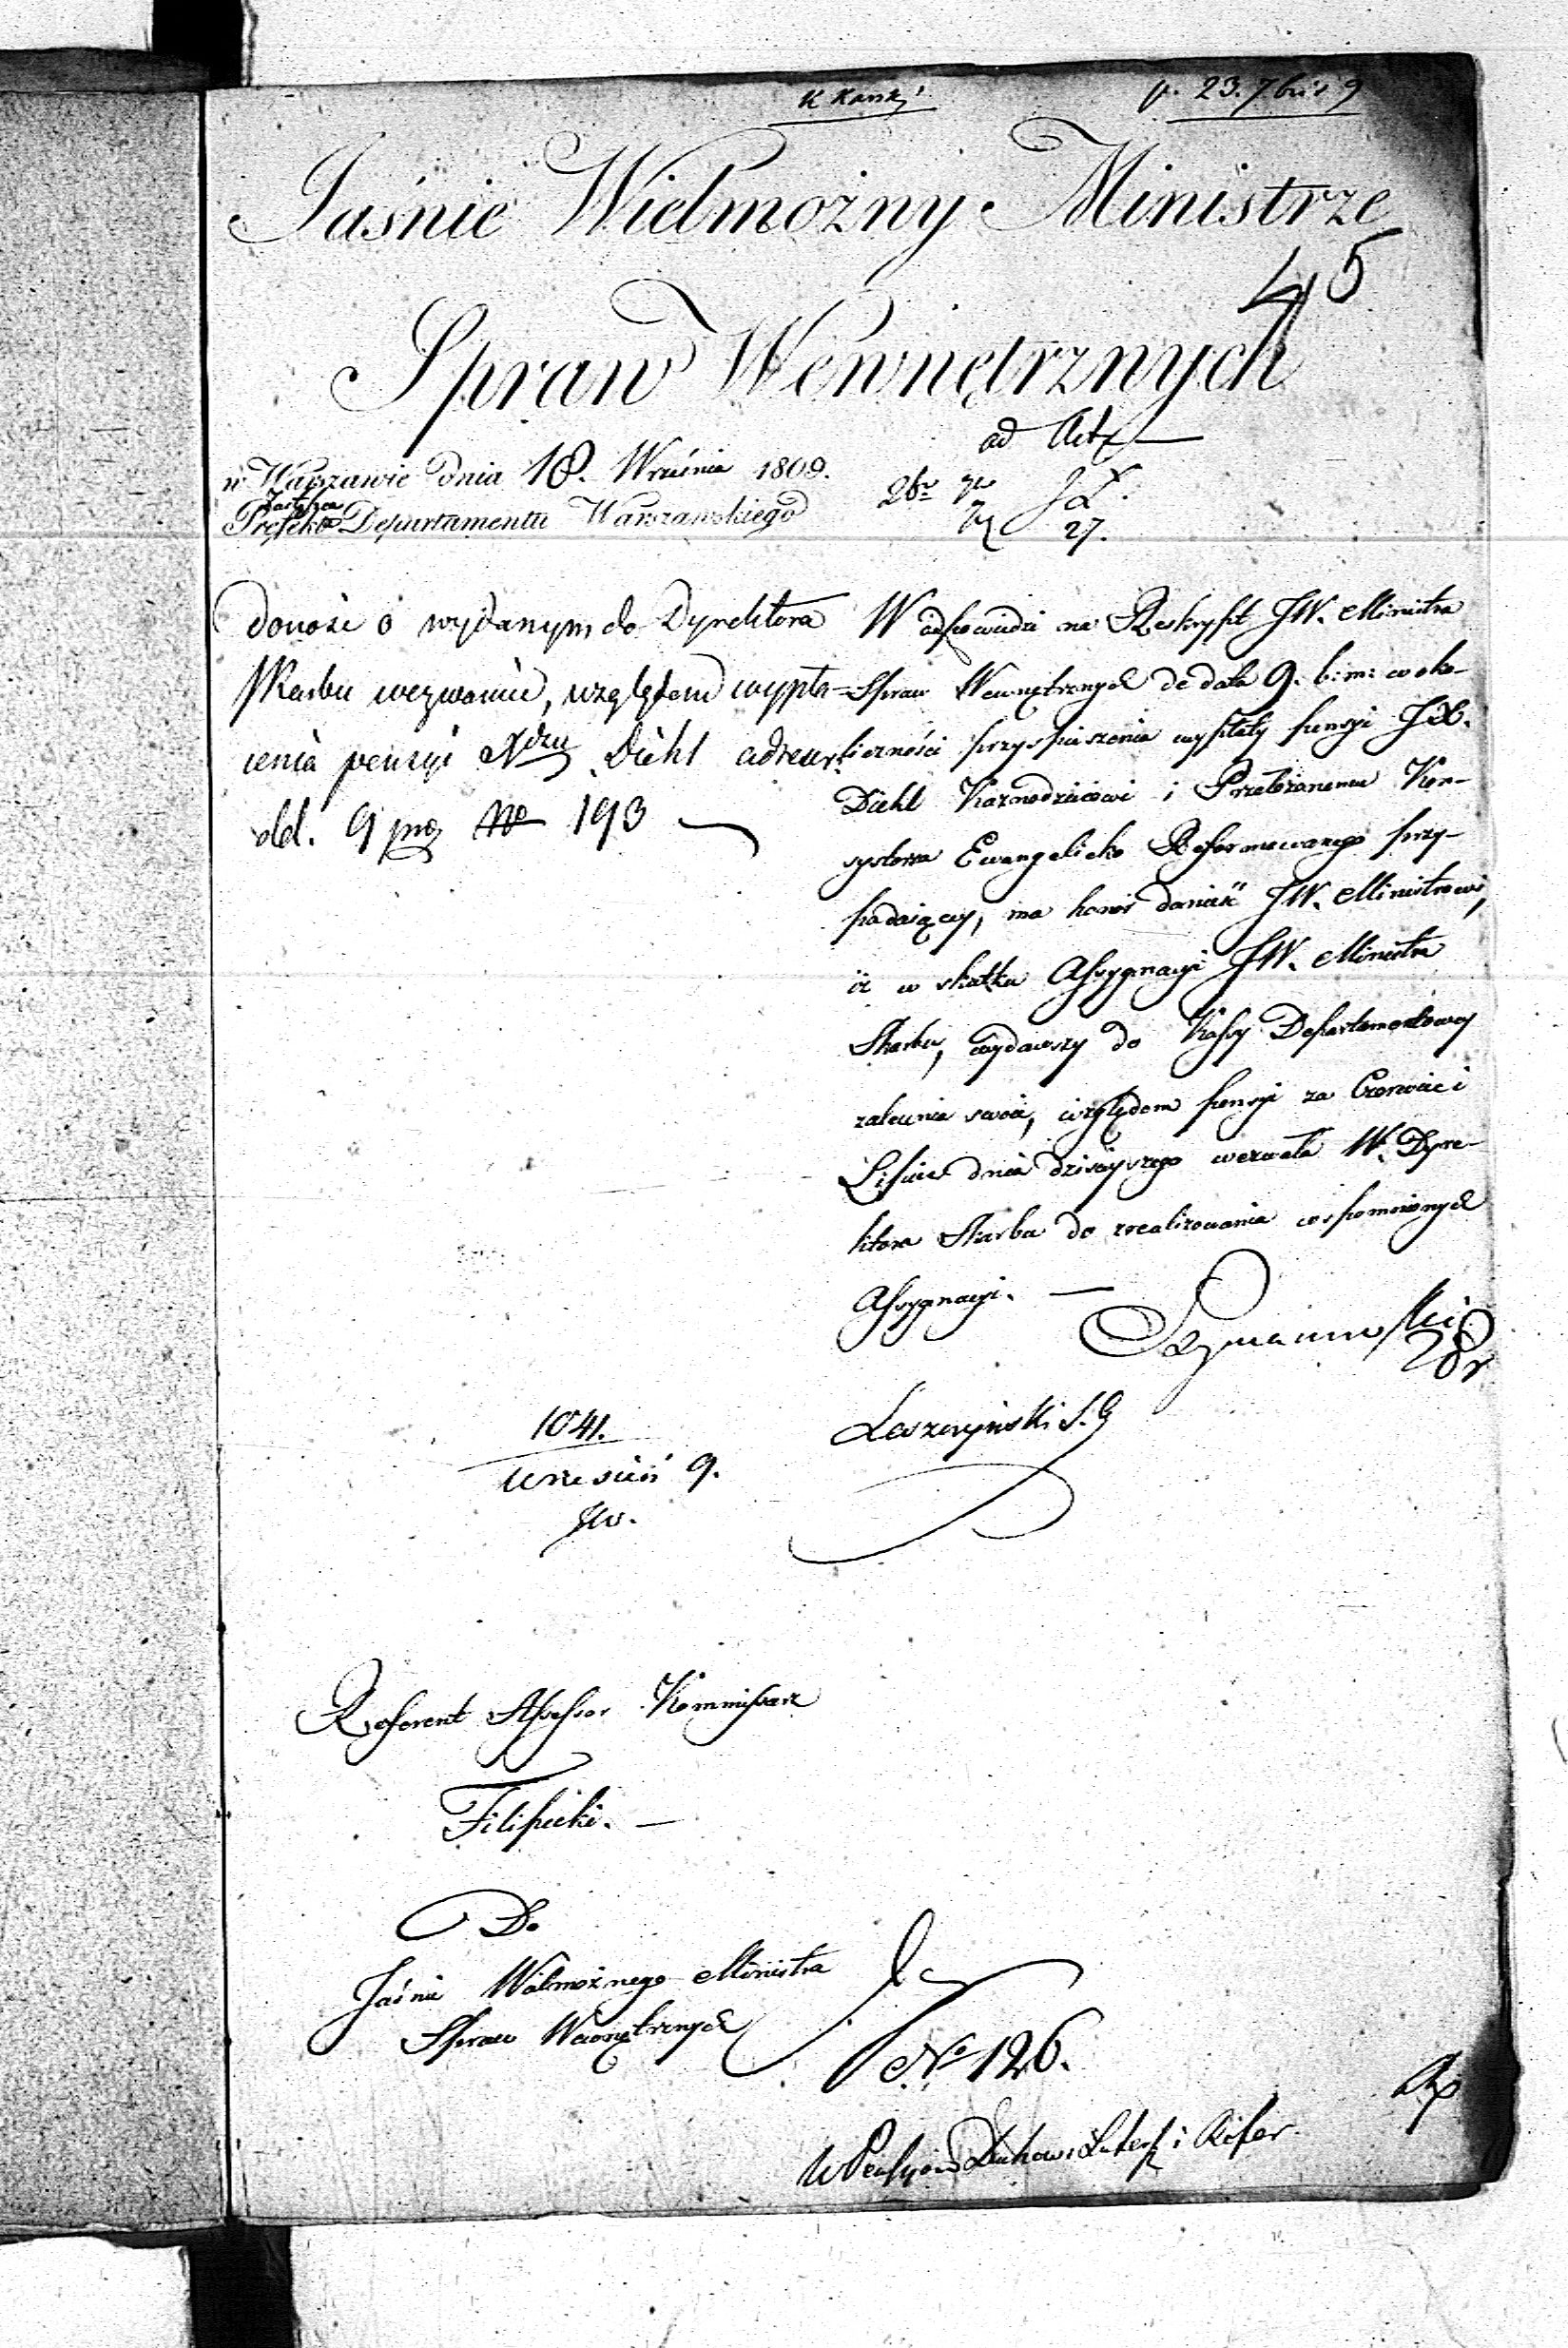 K Karski
p. 23. 7bris 9
Jaśnie Wielmożny Ministrze
45
Spraw Wewnętrznych
ad Acta
w Warszawie dnia 18. Września 1809.
Zastępca
Prefekta Departamentu Warszawskiego
27.
donosi o wydanym do Dyrektora
Skarbu wezwaniu, względem wypła-
cenia pensyi Xdzu Diehl adresus.
dd. 9 No 193
W odpowiedzi na Reskrypt JW. Ministra
Spraw Wewnętrznych de dato 9. b: m: w oko-
liczności przyspieszenia wypłaty pensyi JX.
Diehl Kaznodziejowi i Przełożonemu Kon-
systorza Ewangelicko Reformowanego przy-
padaiącey, ma honor donieść JW. Ministrowi,
iż w skutku Assygnacyi JW. Ministra
Skarbu, wydawszy do Kassy Departamentowey
zalecenia swoie, względem pensyi za Czerwiec i
Lipiec dnia dzisieyszego wezwała W. Dyre-
ktora Skarbu do zrealizowania wspomnionych
Assygnacyi.
Szymanowski
Leszczyński S. G
1041.
wrzesień 9.
JW.
Referent Assessor Kommissarz
Filipecki.
Do
Jaśnie Wielmożnego Ministra
Spraw Wewnętrznych
No 126.
w Pensyów Duchow: Luters: i Refor.